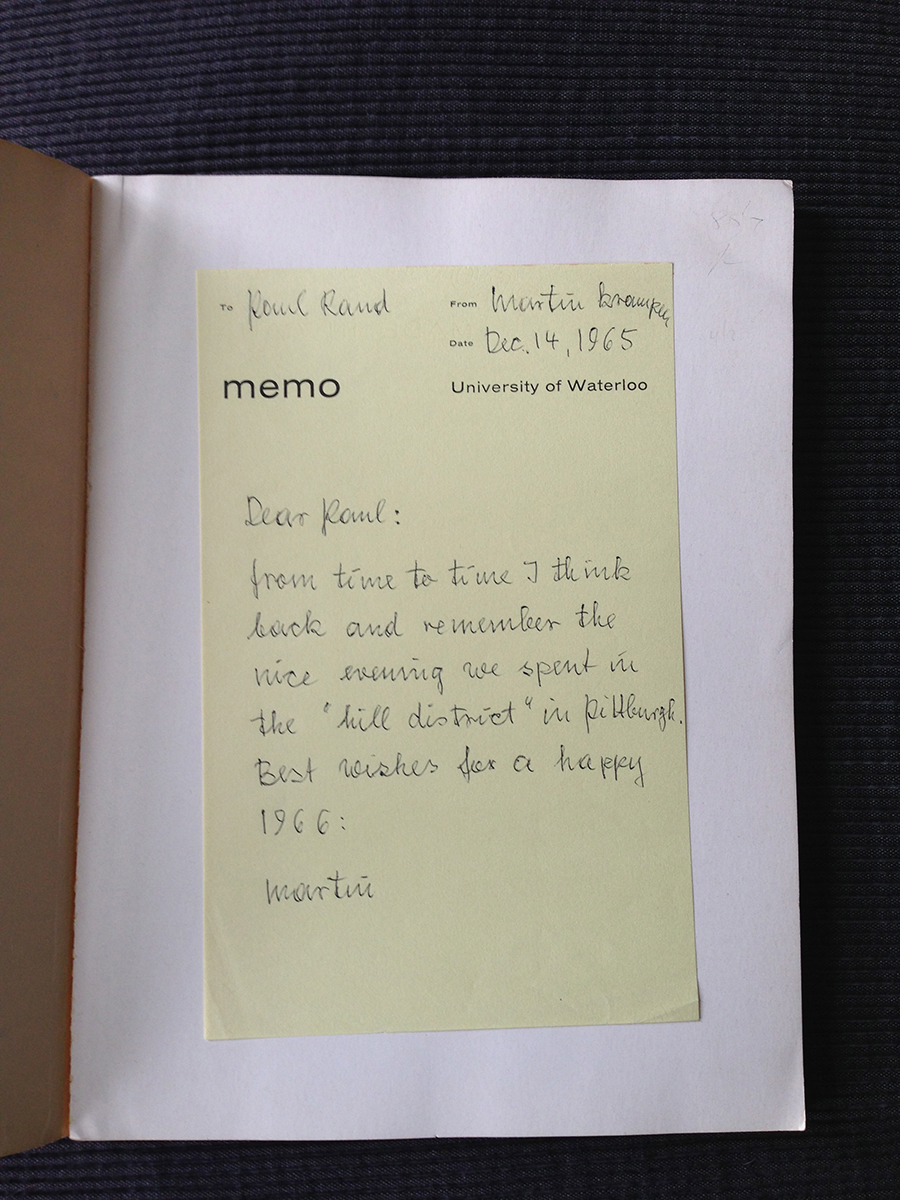 To Paul Rand
From Martin Krampen
Date Dec. 14, 1965
memo
University of Waterloo
Dear Paul:
from time to time I think
back and remember the
nice evening we spent in
the "hill district" in Pittburgh.
Best wishes for a happy
1966:
Martin